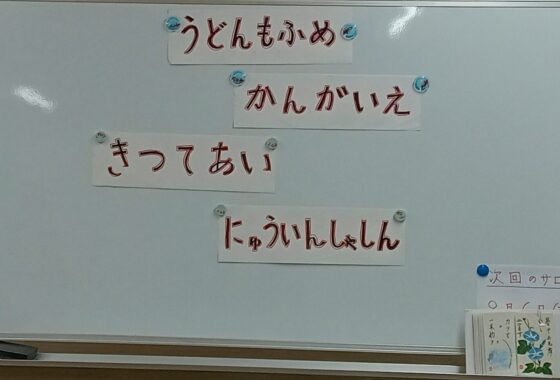 うどんもふめ
かんがいえ
きつてあい
にゅういんしゃしん
次回のサロ